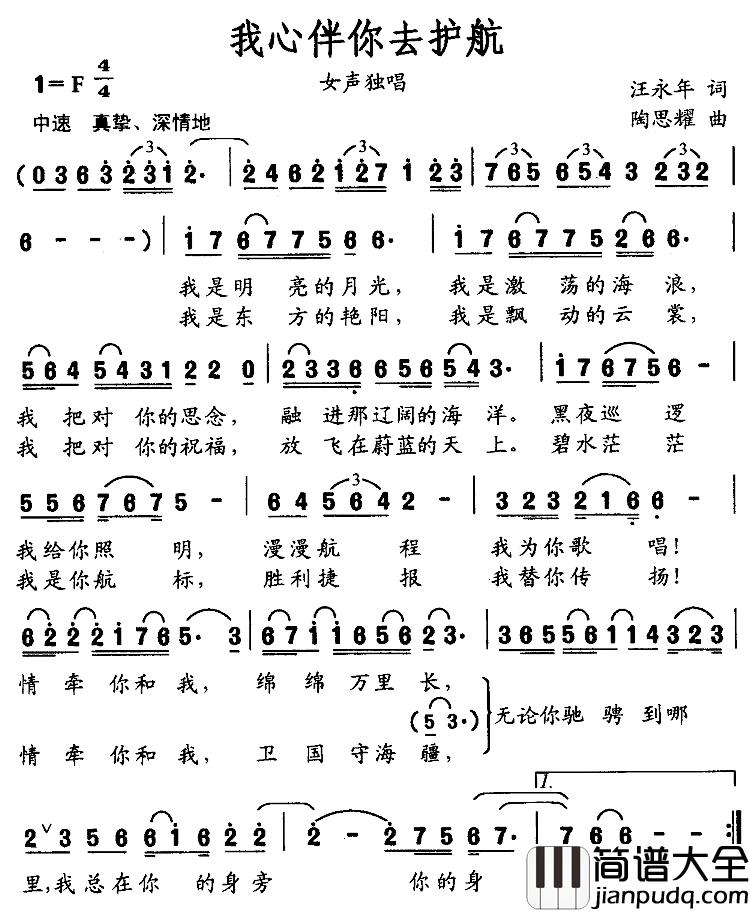 我心伴你去护航
1=F 4/4 女声独唱 汪永年 词
中速 真挚、深情地 陶思耀 曲
(0 3 6 3 2 3 1 2· | 2 4 6 2 1 2 7 1 2 3 | 7 6 5 6 5 4 3 2 3 2 |
6 - - -) | 1 7 6 7 7 5 6 6· | 1 7 6 7 7 5 2 6 6· |
我是明 亮的月光, 我是激 荡的海 浪,
我是东 方的艳阳, 我是飘 动的云 裳,
5 6 4 5 4 3 1 2 2 0 | 2 3 3 6 6 5 6 5 4 3· | 1 7 6 7 5 6 - |
我 把对 你的思念, 融 进那辽阔的海 洋。 黑夜巡 逻
我 把对 你的祝福, 放 飞在蔚蓝的天 上。 碧水茫 茫
5 5 6 7 6 7 5 - | 6 4 5 6 4 2 - | 3 2 2 3 2 1 6 6 - |
我给你照 明, 漫漫航 程 我为你歌 唱!
我是你航 标, 胜利捷 报 我替你传 扬!
6 2 2 2 1 7 6 5· 3 | 6 7 1 1 6 5 6 2 3· | 3 6 5 5 6 1 1 4 3 2 3 |
情 牵 你和 我, 绵 绵 万里 长,
(5 3·) 无论你驰 骋 到哪
情 牵 你和 我, 卫 国 守海 疆,
1.
2 ∨ 3 5 6 6 1 6 2 2 | 2 - 2 7 5 6 7· | 7 6 6 - :|
里,我 总在你 的身旁 你的身
简谱大全
jianpudq.com